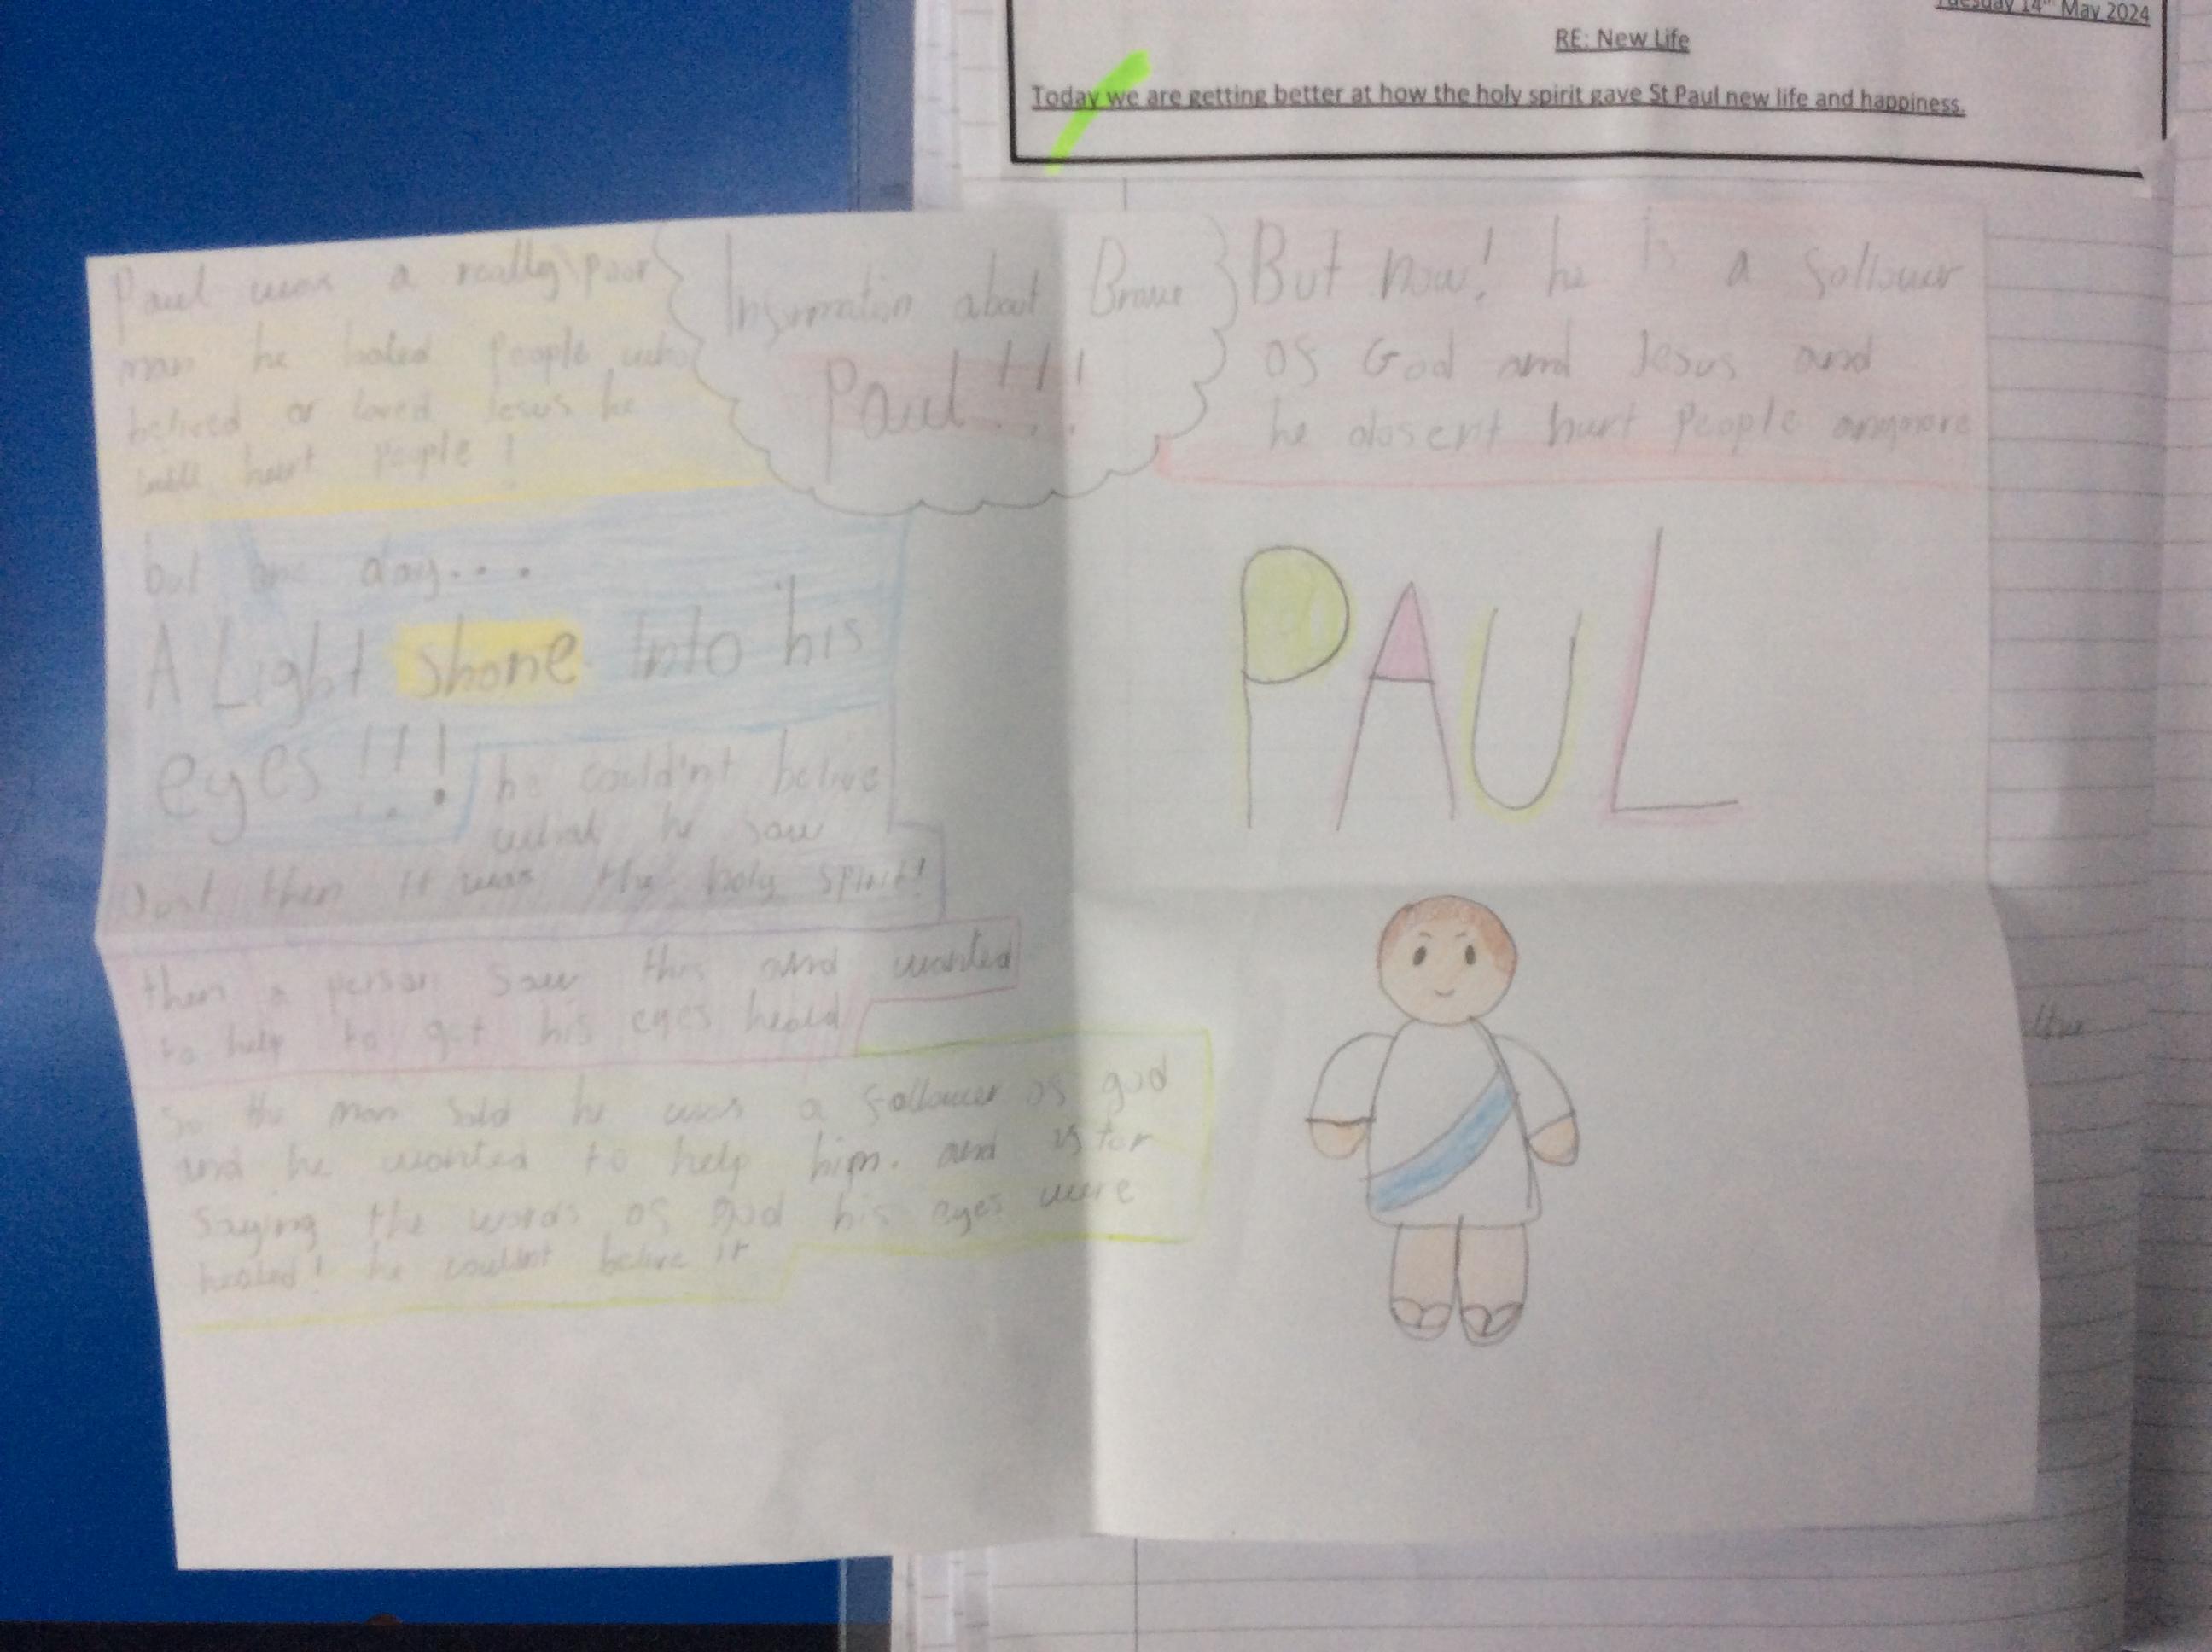 Tuesday 14th May 2024
RE: New Life
Today we are getting better at how the holy spirit gave St Paul new life and happiness.
Information about Brave
Paul!!!
Paul was a really poor
man he hated people who
belived or loved Jesus he
will hurt people!
but one day...
A Light shone Into his
eyes!!!
he could'nt belive
what he saw
Just then it was the holy spirit!
then a person saw this and wanted
to help to get his eyes heald
So the man said he was a follower of god
and he wanted to help him. and after
saying the words of god his eyes were
healed! he couldnt belive it
But now! he is a follower
of God and Jesus and
he dosent hurt people anymore
PAUL